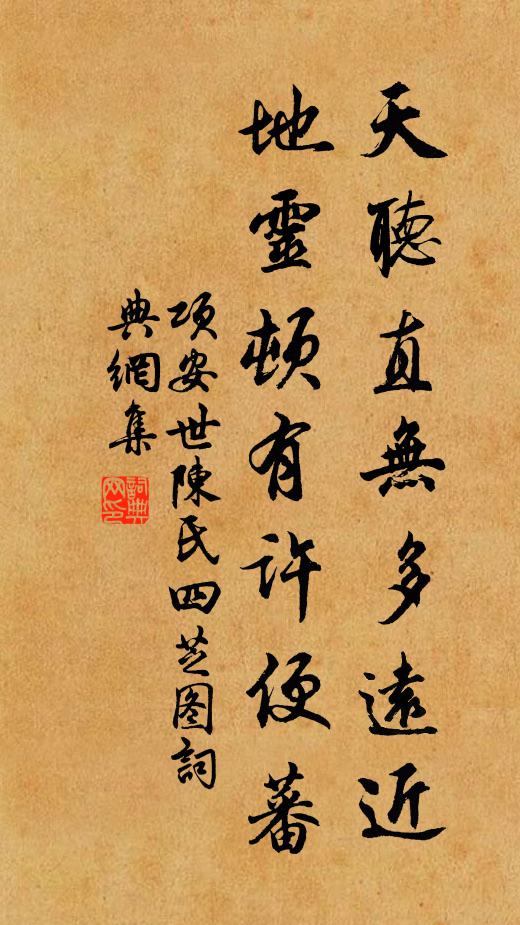 天聽直無多遠近
地靈頓有許便蕃
項安世陳氏四芝图詞
典網集
詞典网印